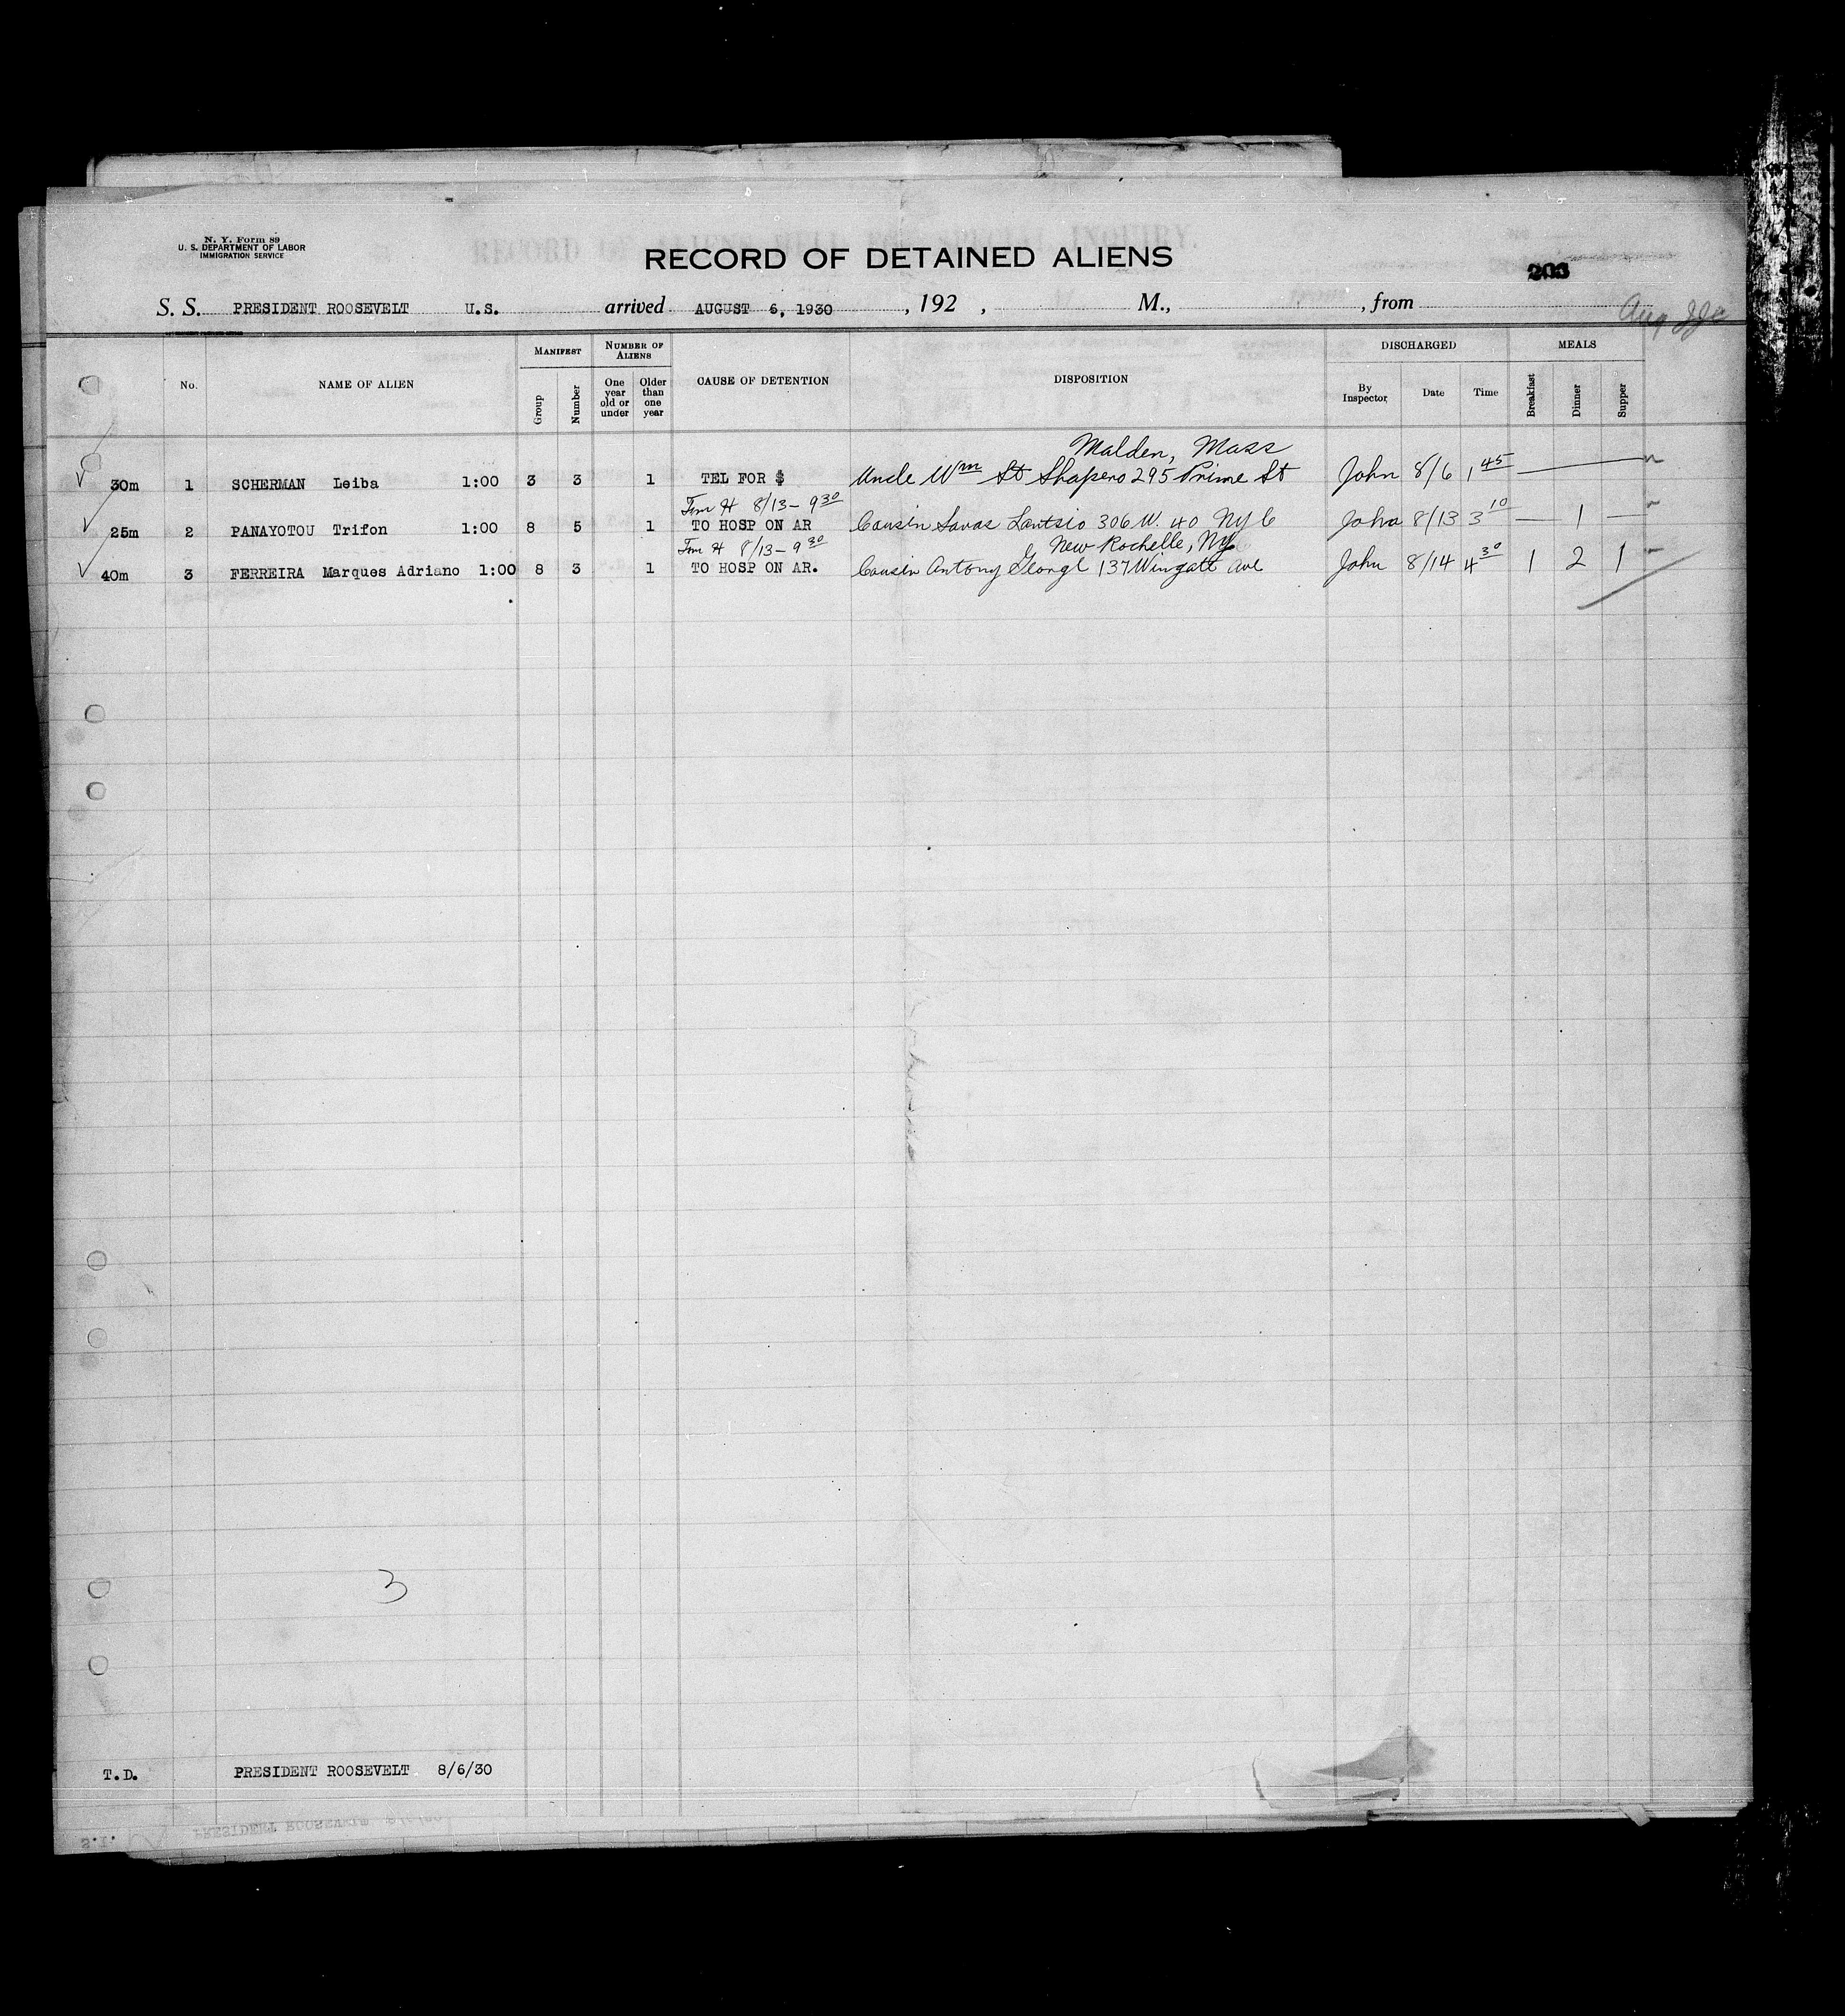 N. Y. Form 89
U. S. DEPARTMENT OF LABOR
IMMIGRATION SERVICE
RECORD OF DETAINED ALIENS
203
S. S. PRESIDENT ROOSEVELT U.S. arrived AUGUST 6, 1930, 192 , M., , from
No. NAME OF ALIEN MANIFEST Group Number NUMBER OF ALIENS One year old or under Older than one year CAUSE OF DETENTION DISPOSITION DISCHARGED By Inspector Date Time MEALS Breakfast Dinner Supper
Malden, Mass
30m 1 SCHERMAN Leiba 1:00 3 3 1 TEL FOR $ Uncle Wm Shapero 295 Prime St John 8/6 1 45
Fm H 8/13 - 9 30
25m 2 PANAYOTOU Trifon 1:00 8 5 1 TO HOSP ON AR Cousin Savas Lantsio 306 W. 40 NY C John 8/13 3 10 — 1 —
Fm H 8/13 - 9 30 New Rochelle, NY
40m 3 FERREIRA Marques Adriano 1:00 8 3 1 TO HOSP ON AR. Cousin Antony George 137 Wingate Ave John 8/14 4 30 1 2 1
3
T.D. PRESIDENT ROOSEVELT 8/6/30